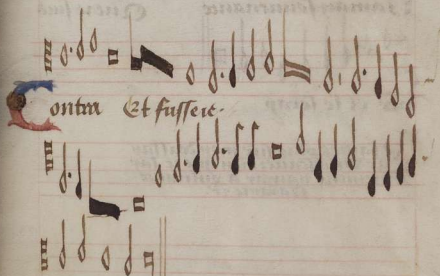 Contra Et fusseie.